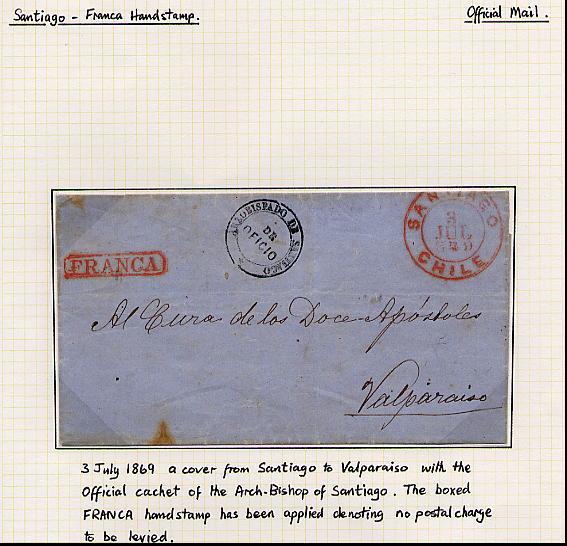 Santiago - Franca Handstamp.
Official Mail.
ARZOBISPADO DE SANTIAGO
DE
OFICIO
SANTIAGO
3
JUL
CHILE
FRANCA
Al Cura de los Doce Apóstoles
Valparaiso
3 July 1869 a cover from Santiago to Valparaiso with the
Official cachet of the Arch-Bishop of Santiago. The boxed
FRANCA handstamp has been applied denoting no postal charge
to be levied.